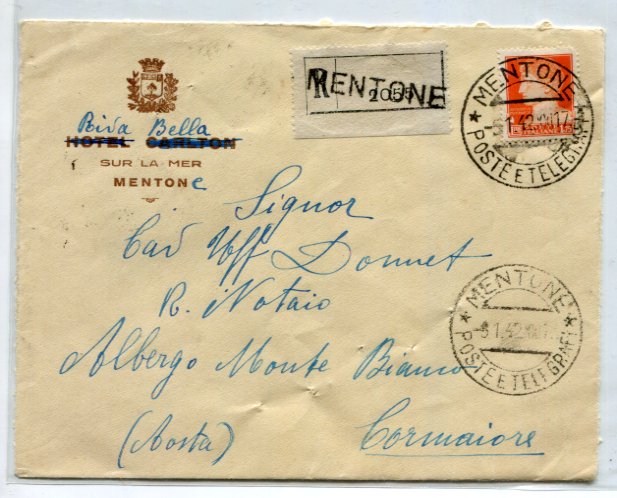 Riva Bella
HOTEL CARLTON
SUR LA MER
MENTONe
R 2055
MENTONE
MENTONE
POSTE E TELEGRAFI
Signor
Cav Uff Donnet
R. Notaio
Albergo Monte Bianco
(Aosta) Cormaiore
MENTONE
3 1.42
POSTE E TELEGRAFI